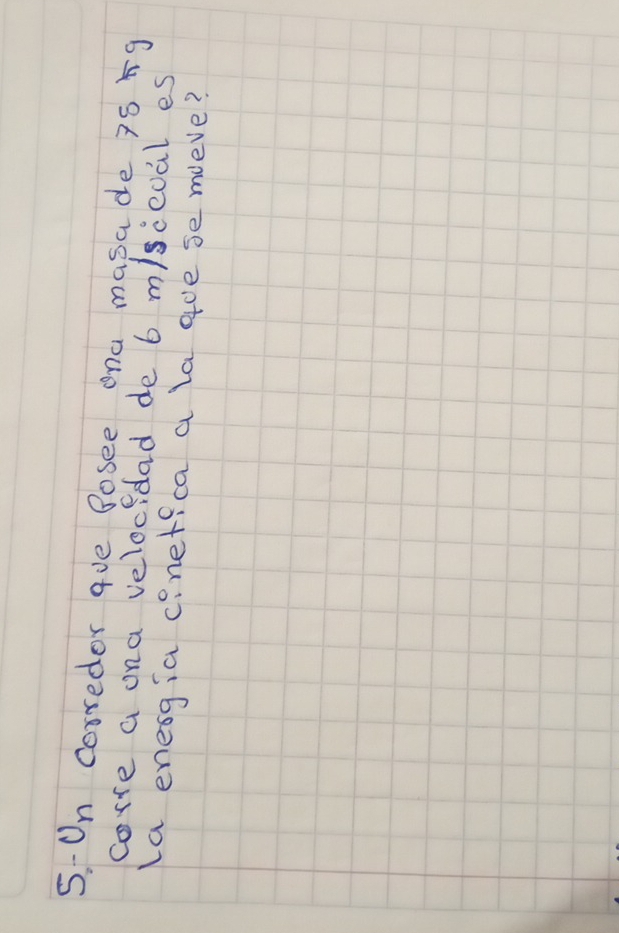 5.- Un corredor que Posee una masa de 75 kg
corre a una velocidad de 6 m/s ¿cuál es
la energía cinetica a la que se mueve?